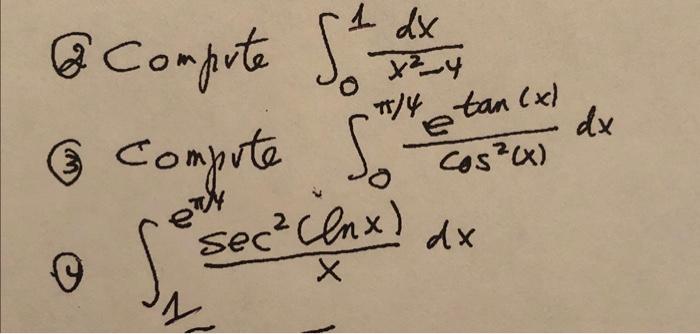 ② Compute ∫₀¹ dx / (x²-4)
③ Compute ∫₀^(π/4) e^(tan(x)) / cos²(x) dx
④ ∫₁^(e^(π/4)) sec²(ln x) / x dx